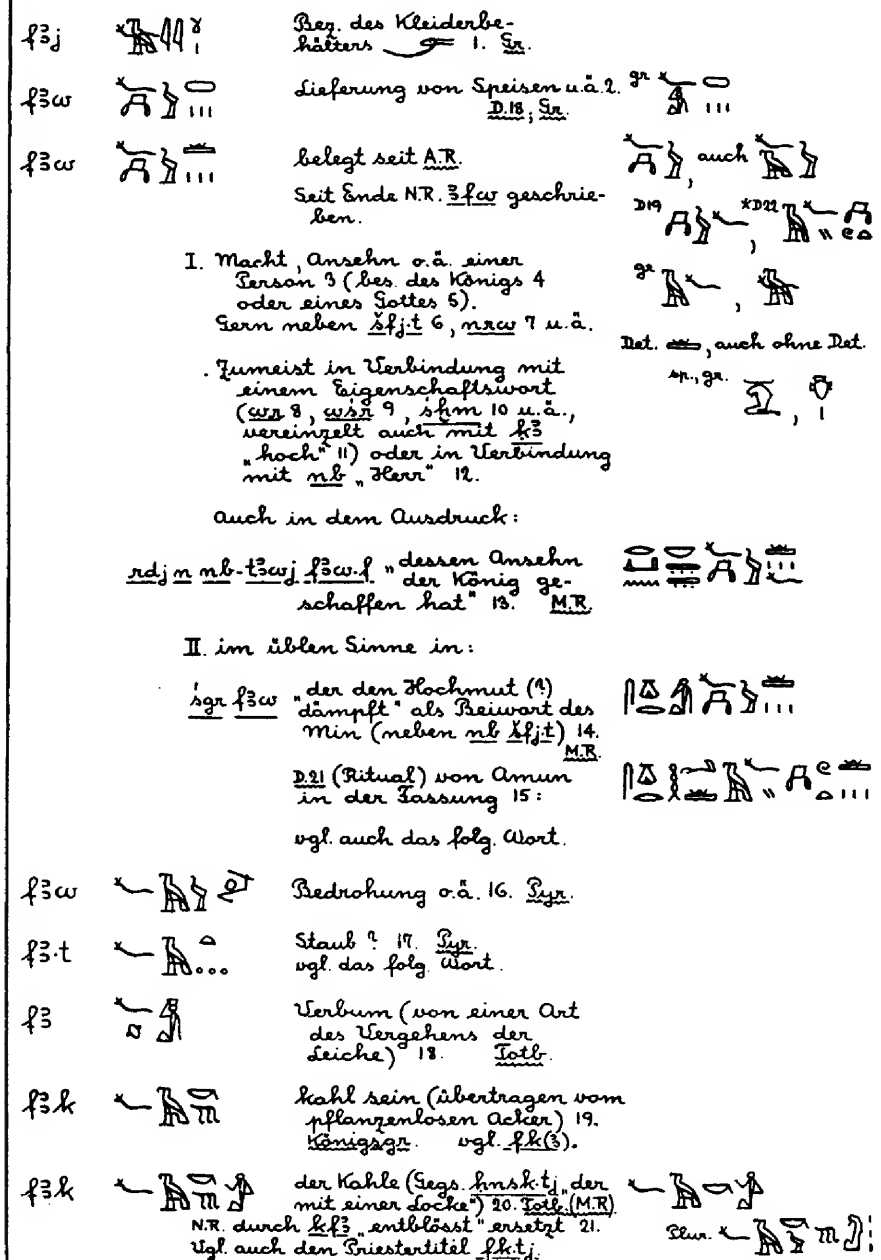 fꜣj Bez. des Kleiderbe-
hälters 1. Gr.
fꜣw Lieferung von Speisen u.ä. 2. gr
D.18; Gr.
fꜣw belegt seit A.R. , auch
Seit Ende N.R. ꜣfw geschrie-
ben. D19 , *D22
I. Macht, Ansehn o.ä. einer
Person 3 (bes. des Königs 4
oder eines Gottes 5). gr ,
Gern neben šfj.t 6, nrw 7 u.ä.
Det. , auch ohne Det.
Zumeist in Verbindung mit sp., gr. ,
einem Eigenschaftswort
(wr 8, wśr 9, sḫm 10 u.ä.,
vereinzelt auch mit ḳꜣ
„hoch" 11) oder in Verbindung
mit nb „Herr" 12.
Auch in dem Ausdruck:
rdj n nb-tꜣwj fꜣw.f „dessen Ansehn
der König ge-
schaffen hat" 13. M.R.
II. im üblen Sinne in:
śgr fꜣw „der den Hochmut (?)
dämpft" als Beiwort des
Min (neben nb šfj.t) 14.
M.R.
D.21 (Ritual) von Amun
in der Fassung 15:
vgl. auch das folg. Wort.
fꜣw Bedrohung o.ä. 16. Pyr.
fꜣ.t Staub? 17. Pyr.
vgl. das folg. Wort.
fꜣ Verbum (von einer Art
des Vergehens der
Leiche) 18. Totb.
fꜣk kahl sein (übertragen vom
pflanzenlosen Acker) 19.
Königsgr. vgl. fk(ꜣ).
fꜣk der Kahle (Gegs. ḥnsk.tj „der
mit einer Locke") 20. Totb. (M.R)
N.R. durch kfꜣ „entblösst" ersetzt 21.
Vgl. auch den Priestertitel fk.tj. Plur.